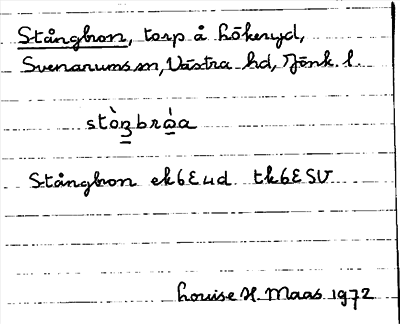 Stångbron, torp å Hökeryd,
Svenarums sn, Västra hd, Jönk. l.
Stångbron ek6E4d tk6ESV
Louise H. Maas 1972